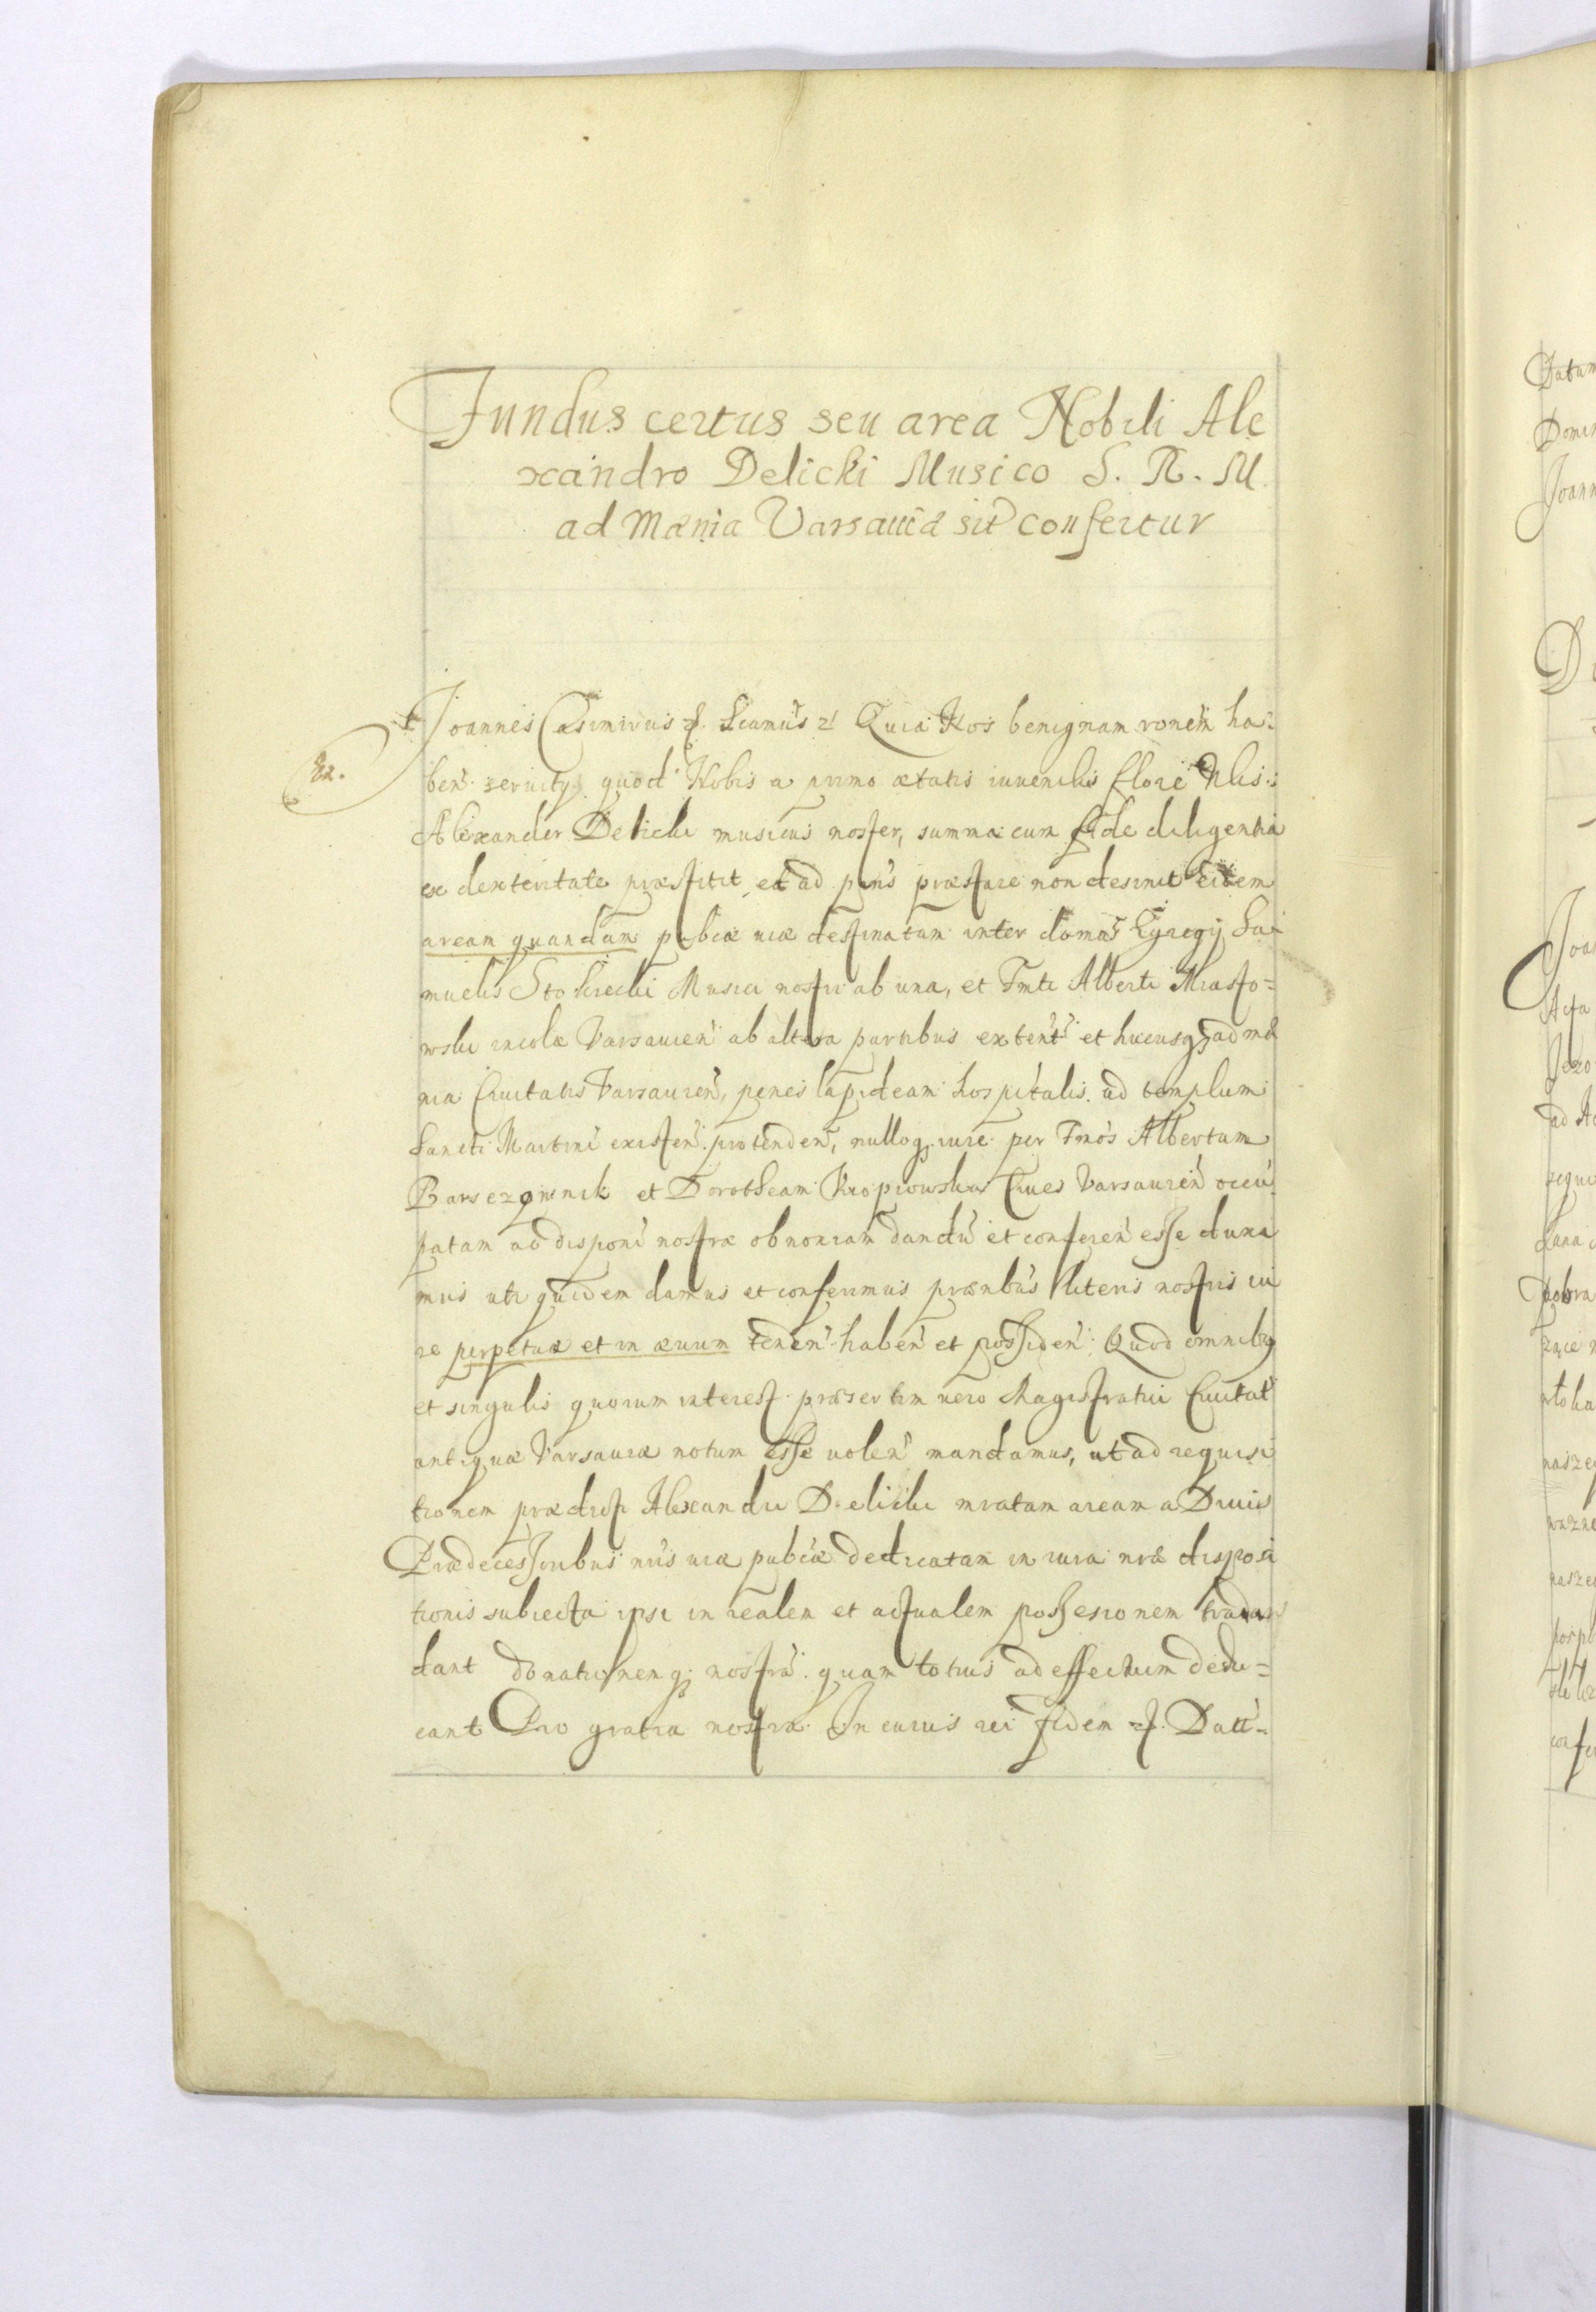 Fundus certus seu area Nobili Ale
xandro Delicki Musico S. R. M.
ad Mænia Varsaviæ sit confertur
Joannes Casimirus Quia Nos benignam ronem ha-
22.
ben servitys quod Nobis a primo ætatis iuvenilis flore Nlis
Alexander Delicki musicus noster, summa cum fide diligentia
ac dexteritate præstitit et ad pns præstare non desinit eidem
aream quandam publicæ viæ destinatam inter domos Egregij Sa-
muelis Sto Musici nostri ab una, et Fmti Alberti Miasto-
wski incolæ Varsavien ab altera partibus exten et hucusq ad mæ
nia Civitatis Varsavien, penes lapideam hospitalis ad templum
Sancti Martini existen protenden, nulloq iure per Fmos Albertum
Barszgninik et Dorotheam Kropiowska Cives Varsavien occu
patam ac disponi nostræ obnoxiam dandu et conferen esse duxi
mus uti quidem damus et conferimus prænbus literis nostris iu
re perpetuo et in ævum tenen haben et possiden Quod omnibus
et singulis quorum interest præsertim vero Magistratui Civitat
antiquæ Varsaviæ notum esse volen mandamus, ut ad requisi
tionem prædict Alexandri Delicki mratam aream a Divis
Prædecessoribus nris viæ publicæ dedicatam in iura nræ disposi
tionis subiecta ipsi in realem et actualem possesionem tradan
dant donationemq nostra quam totius ad effectum dedu-
cant Pro gratia nostra In cuius rei fidem Datt-
Datum
Joann
ad